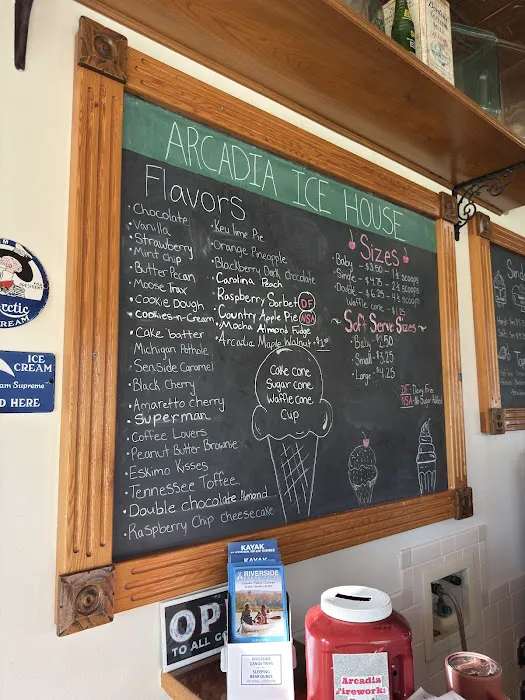 ARCADIA ICE HOUSE
Flavors
• Chocolate
• Vanilla
• Strawberry
• Mint chip
• Butter Pecan
• Moose Trax
• Cookie Dough
• Cookies-n-Cream
• Cake batter
• Michigan Pothole
• SeaSide Caramel
• Black Cherry
• Amaretto cherry
• Superman
• Coffee Lovers
• Peanut Butter Brownie
• Eskimo Kisses
• Tennessee Toffee
• Double chocolate Almond
• Raspberry Chip cheesecake
• Key lime Pie
• Orange Pineapple
• Blackberry Dark chocolate
• Carolina Peach
• Raspberry Sorbet DF
• Country Apple Pie NSA
• Mocha Almond Fudge
• Arcadia Maple Walnut
Cake cone
Sugar cone
Waffle cone
Cup
Sizes
• Baby - $3.50 - 1 scoop
• Single - $4.75 - 2 scoops
• Double - $6.25 - 4 scoops
Waffle cone - $1.25
~ Soft Serve Sizes ~
• Baby $2.50
• Small $3.25
• Large $4.25
DF - Dairy Free
NSA - No Sugar Added
Arctic
ICE CREAM
ICE
CREAM
am Supreme
D HERE
OP
TO ALL
KAYAK
KAYAK
RIVERSIDE
RIVERSIDE
CANOE TRIPS
SLEEPING
BEAR DUNES
Arcadia
Fireworks